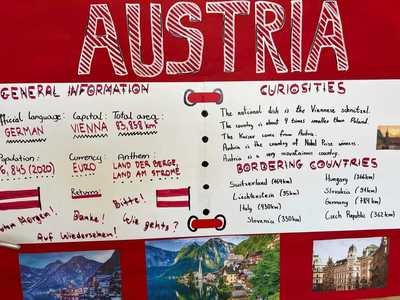 AUSTRIA
GENERAL INFORMATION
Official language: Capital: Total area:
GERMAN VIENNA 83,858 km
Population: Currency: Anthem
845 (2020) EURO LAND DER BERGE,
LAND AM STROME
Returns:
Morgen! Danke! Bitte! Wie gehts?
Auf Wiedersehen!
CURIOSITIES
The national dish is the Viennese schnitzel.
The country is about 4 times smaller than Poland.
The Kaiser come from Austria.
Austria is the country of Nobel Prize winners.
Austria is a very mountainous country.
BORDERING COUNTRIES
Switzerland (164km)
Liechtenstein (35km)
Italy (430km)
Slovenia (330km)
Hungary (366km)
Slovakia (91km)
Germany (784km)
Czech Republic (362km)